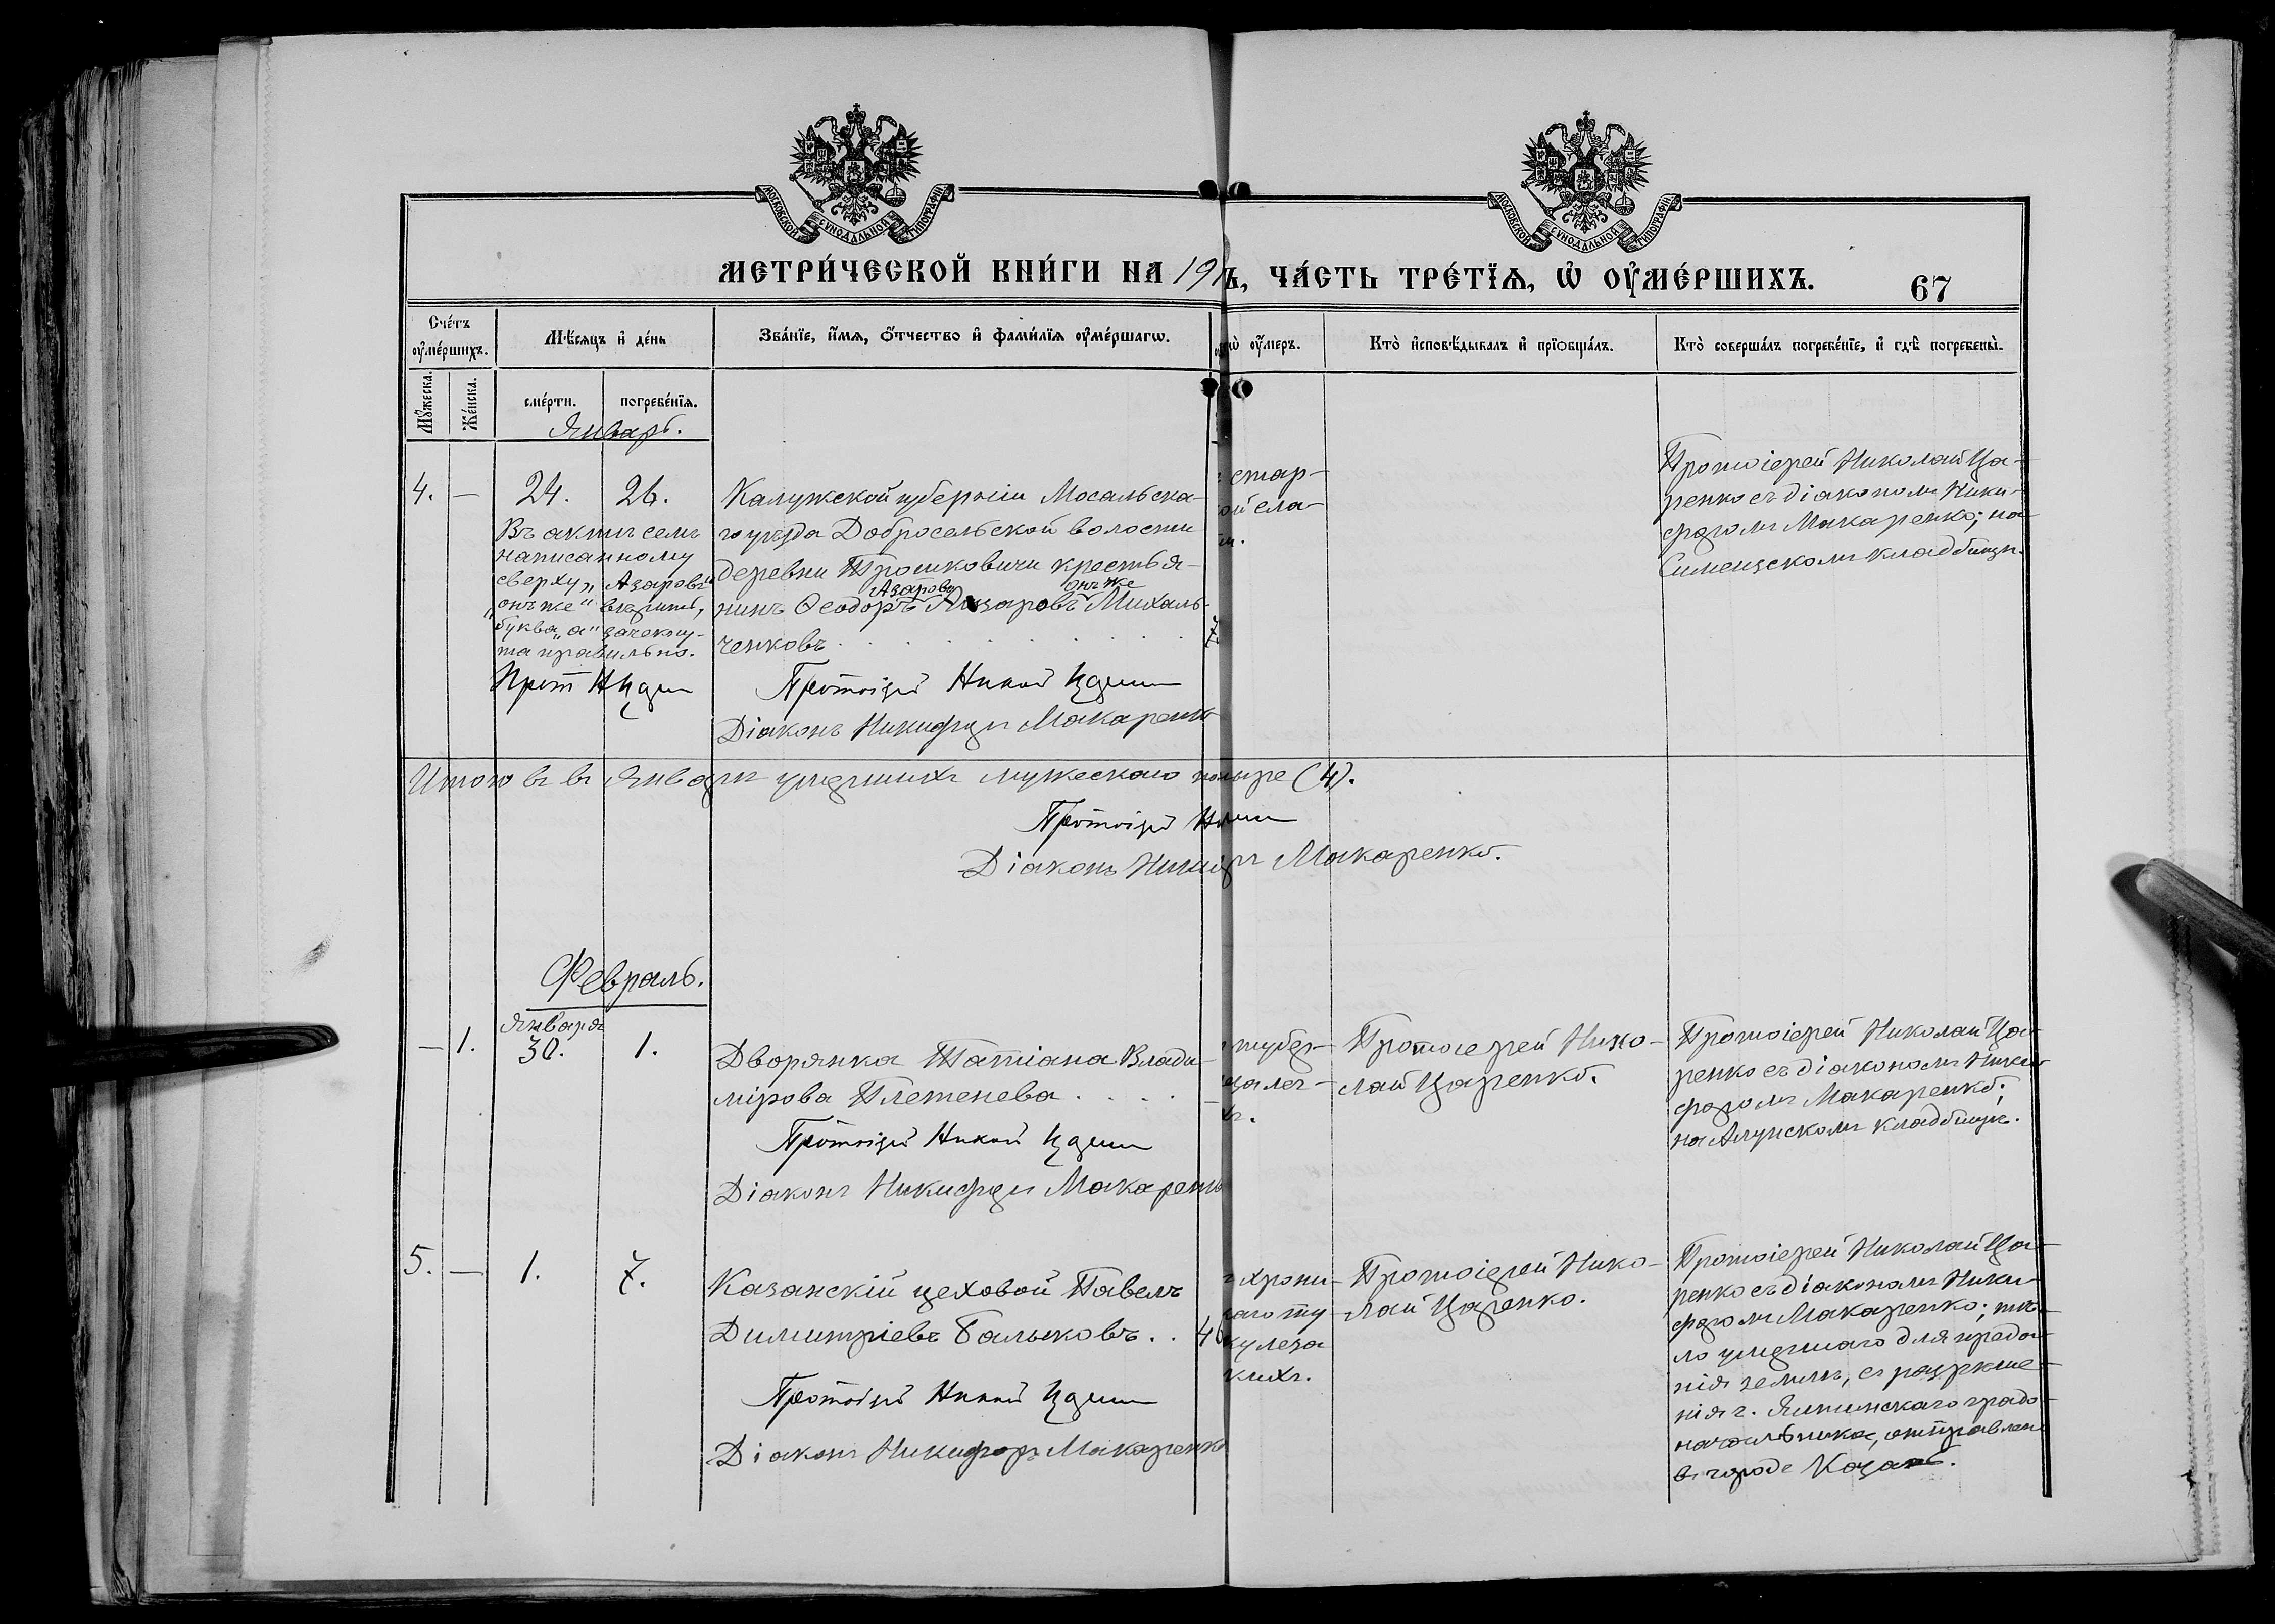 МОСКОВСКОЙ СУНОДАЛЬНОЙ ТИПОГРАФІИ
МОСКОВСКОЙ СУНОДАЛЬНОЙ ТИПОГРАФІИ
МЕТРИ́ЧЕСКОЙ КНИ́ГИ НА 191
Ъ, ЧА́СТЬ ТРЕ́ТЇѦ, Ѡ҆ ОУ҆МЕ́РШИХЪ.
67
Сче́тъ оу҆ме́ршихъ.
Мѣ́сяцъ и҆ де́нь
Зва́нїе, и҆́мѧ, ѻ҆́тчество и҆ фами́лїѧ оу҆ме́ршагѡ.
оу҆́меръ.
Кто̀ и҆сповѣ́дывалъ и҆ прїѡбща́лъ.
Кто̀ соверша́лъ погребе́нїе, и҆ гдѣ̀ погребены̀.
Му́жеска.
Же́нска.
сме́рти.
погребе́нїѧ.
Январь.
4. — 24. 26.
Въ актѣ семъ
написанному
сверху „Азаровъ"
„онъ же" вѣрить,
буква „а" зачекну-
та правильно.
Прот Н
Калужской губерніи Мосальска-
го уѣзда Добросельской волости
деревни Трошковичи крестья-
Азаровъ онъ же
нинъ Ѳеодоръ Азаровъ Михаль-
ченковъ . . . . . . . 7
Протоіерей Никол Царенко
Діаконъ Никифоръ Макаренко
стар-
ой сла-
Протоіерей Николай Ца-
ренко съ діакономъ Ники-
форомъ Макаренко; на
Симеизскомъ кладбищѣ.
Итого въ въ Январѣ умершихъ мужескаго пол ыре (4).
Протоіерей Н
Діаконъ Ники ръ Макаренко.
Февраль.
Января
— 1. 30. 1.
Дворянка Татіана Влади-
мірова Плетенева . . . .
Протоіерей Никол Царенко
Діаконъ Никифоръ Макаренко
тубер-
Протоіерей Нико-
лай Царенко.
Протоіерей Николай Ца-
ренко съ діакономъ Ники-
форомъ Макаренко;
на Алупскомъ кладбищѣ.
5. — 1. 7.
Казанскій цеховой Павелъ
Димитріевъ Балыковъ . . 4
Протоіерей Никол Царенко
Діаконъ Никифоръ Макаренко
хрони-
аго ту
кулеза
кихъ.
Протоіерей Нико-
лай Царенко.
Протоіерей Николай Ца-
ренко съ діакономъ Ники-
форомъ Макаренко; тѣ-
ло умершаго для преда-
нія землѣ, съ разрѣше-
нія г. Ялтинскаго градо-
начальника, отправлено
въ городе Казань.